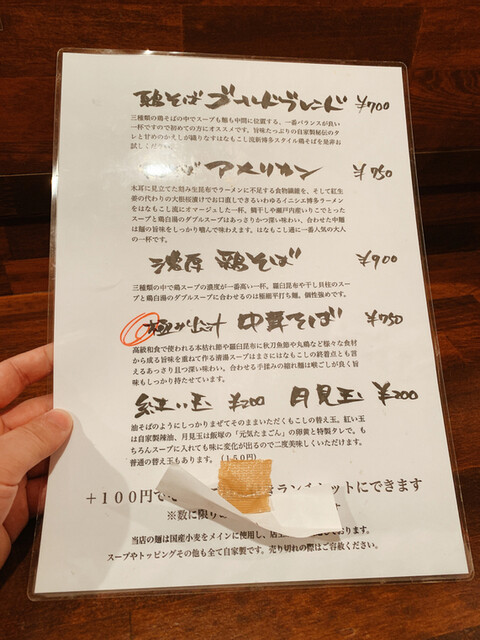 鶏そば ゴールドブレンド ¥700
三種類の鶏そばの中でスープも麺も中間に位置する、一番バランスが良い
一杯ですので初めての方にオススメです。旨味たっぷりの自家製秘伝のタ
レと甘めのかえしが織りなすはなもこし流新博多スタイル鶏そばを是非お
試しください
アメリカン ¥750
木耳に見立てた刻み生昆布でラーメンに不足する食物繊維を、そして紅生
姜の代わりの大根桜漬けでお口直しできるいわゆるイニシエ博多ラーメン
をはなもこし流にオマージュした一杯、鯛干しや瀬戸内産いりこでとった
スープと鶏白湯のダブルスープはあっさりかつ深い味わい、合わせた中麺
は麺の旨味をしっかり噛んで味わえます。はなもこし通に一番人気の大人
の一杯です。
濃厚 鶏そば ¥900
三種類の中で鶏スープの濃度が一番高い一杯。羅臼昆布や干し貝柱のスー
プと鶏白湯のダブルスープに合わせるのは極細平打ち麺。個性強めです。
極み出汁 中華そば ¥750
高級和食で使われる本枯れ節や羅臼昆布に秋刀魚節や丸鶏など様々な食材
から成る旨味を重ねて作る清湯スープはまさにはなもこしの終着点とも言
えるあっさり且つ深い味わい。合わせる手揉みの縮れ麺は喉ごしが良く旨
味もしっかり持たせています。
紅い玉 ¥200 月見玉 ¥200
油そばのようにしっかりまぜてそのままいただくもこしの替え玉。紅い玉
は自家製辣油、月見玉は飯塚の「元気たまごん」の卵黄と特製タレで。も
ちろんスープに入れても味に変化が出るので二度美味しくいただけます。
普通の替え玉もあります。(150円)
+100円で ランチセットにできます
※数に限り
当店の麺は国産小麦をメインに使用し、店主 ております。
スープやトッピングその他も全て自家製です。売り切れの際はご容赦ください。